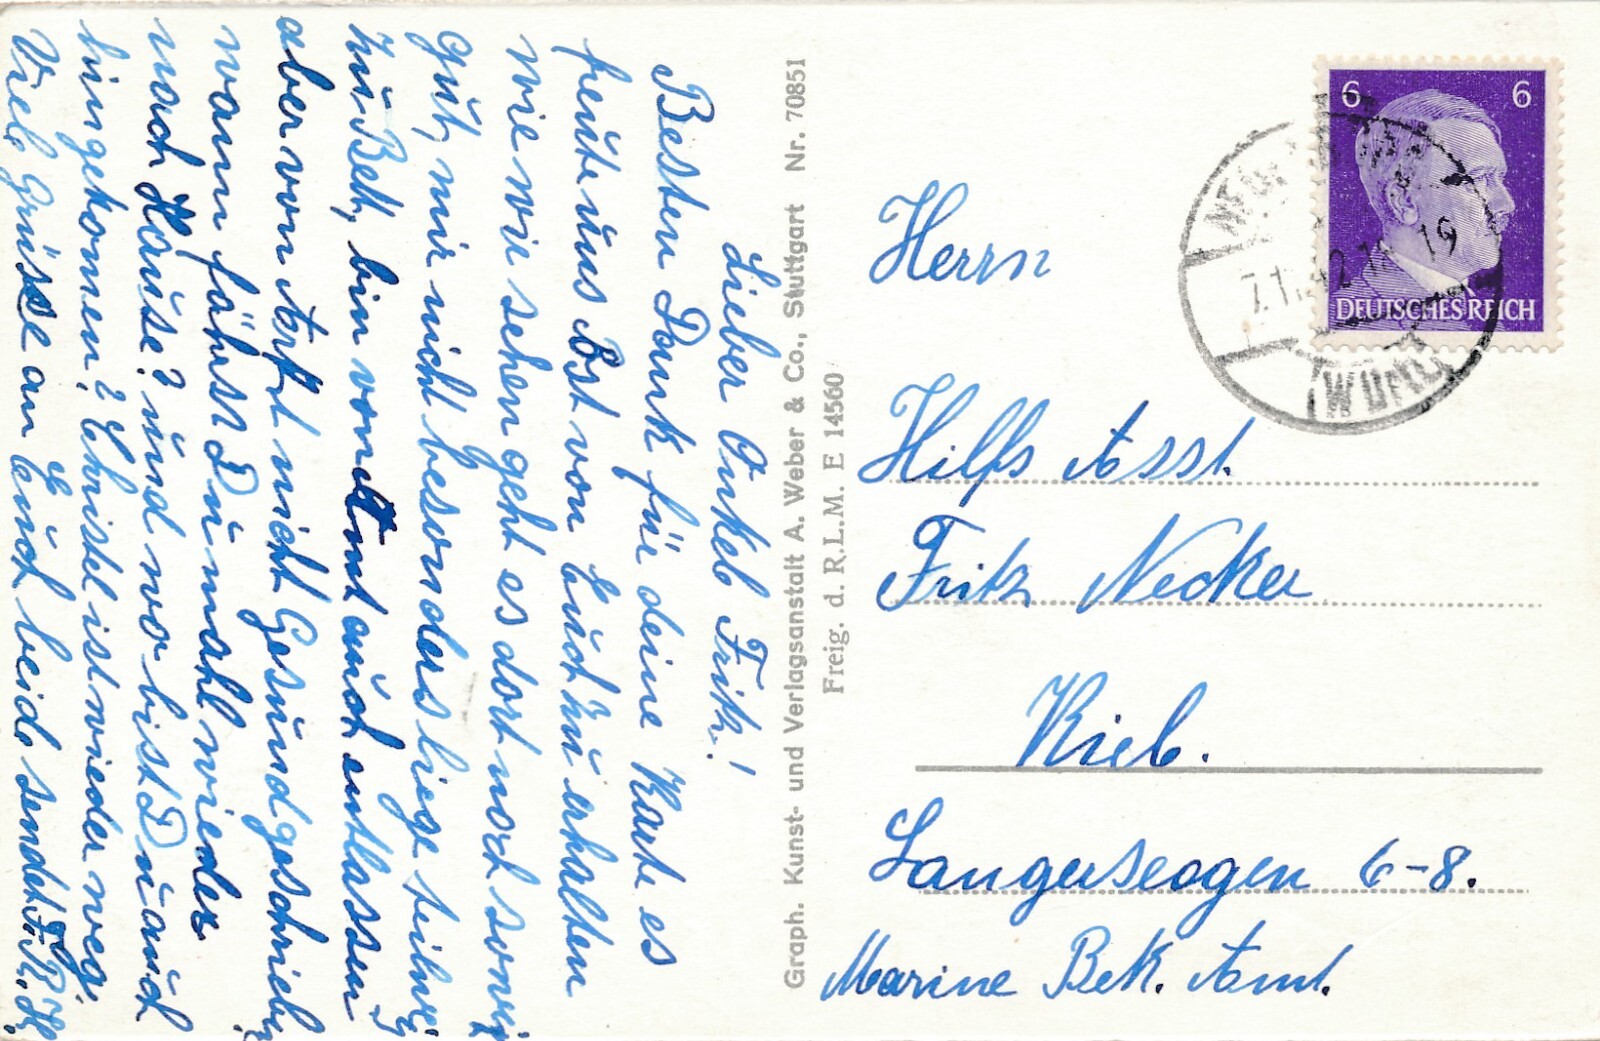 Lieber Onkel Fritz!
Besten Dank für deine Karte es
freute uns Post von Euch zu erhalten
wie wir sehen geht es dort noch so wie
gut, mir nicht besonders liege teilweis
zu Bett, bin vom Amt auch entlassen
aber vom Arzt nicht Gesund geschrieben
wann fährst Du mahl wieder
nach Hause? und wo bist Du auch
hingekomen? Christel ist wieder weg.
Viele Grüsse an Euch beide sendet
Graph. Kunst- und Verlagsanstalt A. Weber & Co., Stuttgart Nr. 70851
Freig. d. R.L.M. E 14560
6 6
DEUTSCHES REICH
Herrn
Hilfs Asst.
Fritz Necker
Kiel.
Langersegen 6-8.
Marine Bek. Amt.